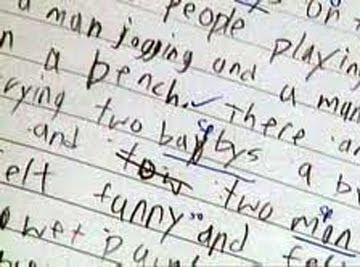 people playing
a man jogging and a man
n a bench. There ar
rying two babys a b
and two man
elt funny and fee
wet pain